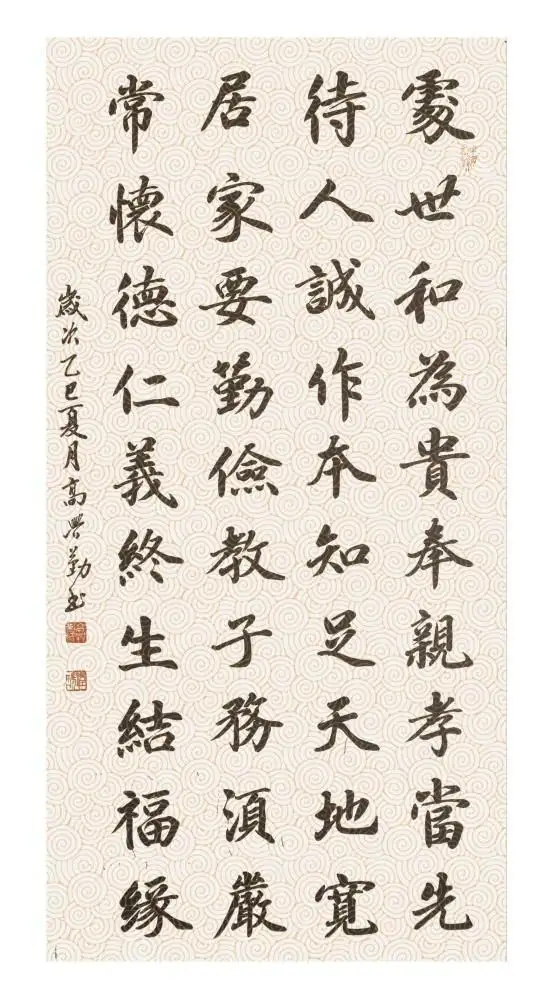 處世和為貴奉親孝當先
待人誠作本知足天地寬
居家要勤儉教子務須嚴
常懷德仁義終生結福緣
歲次乙巳夏月高興勤書